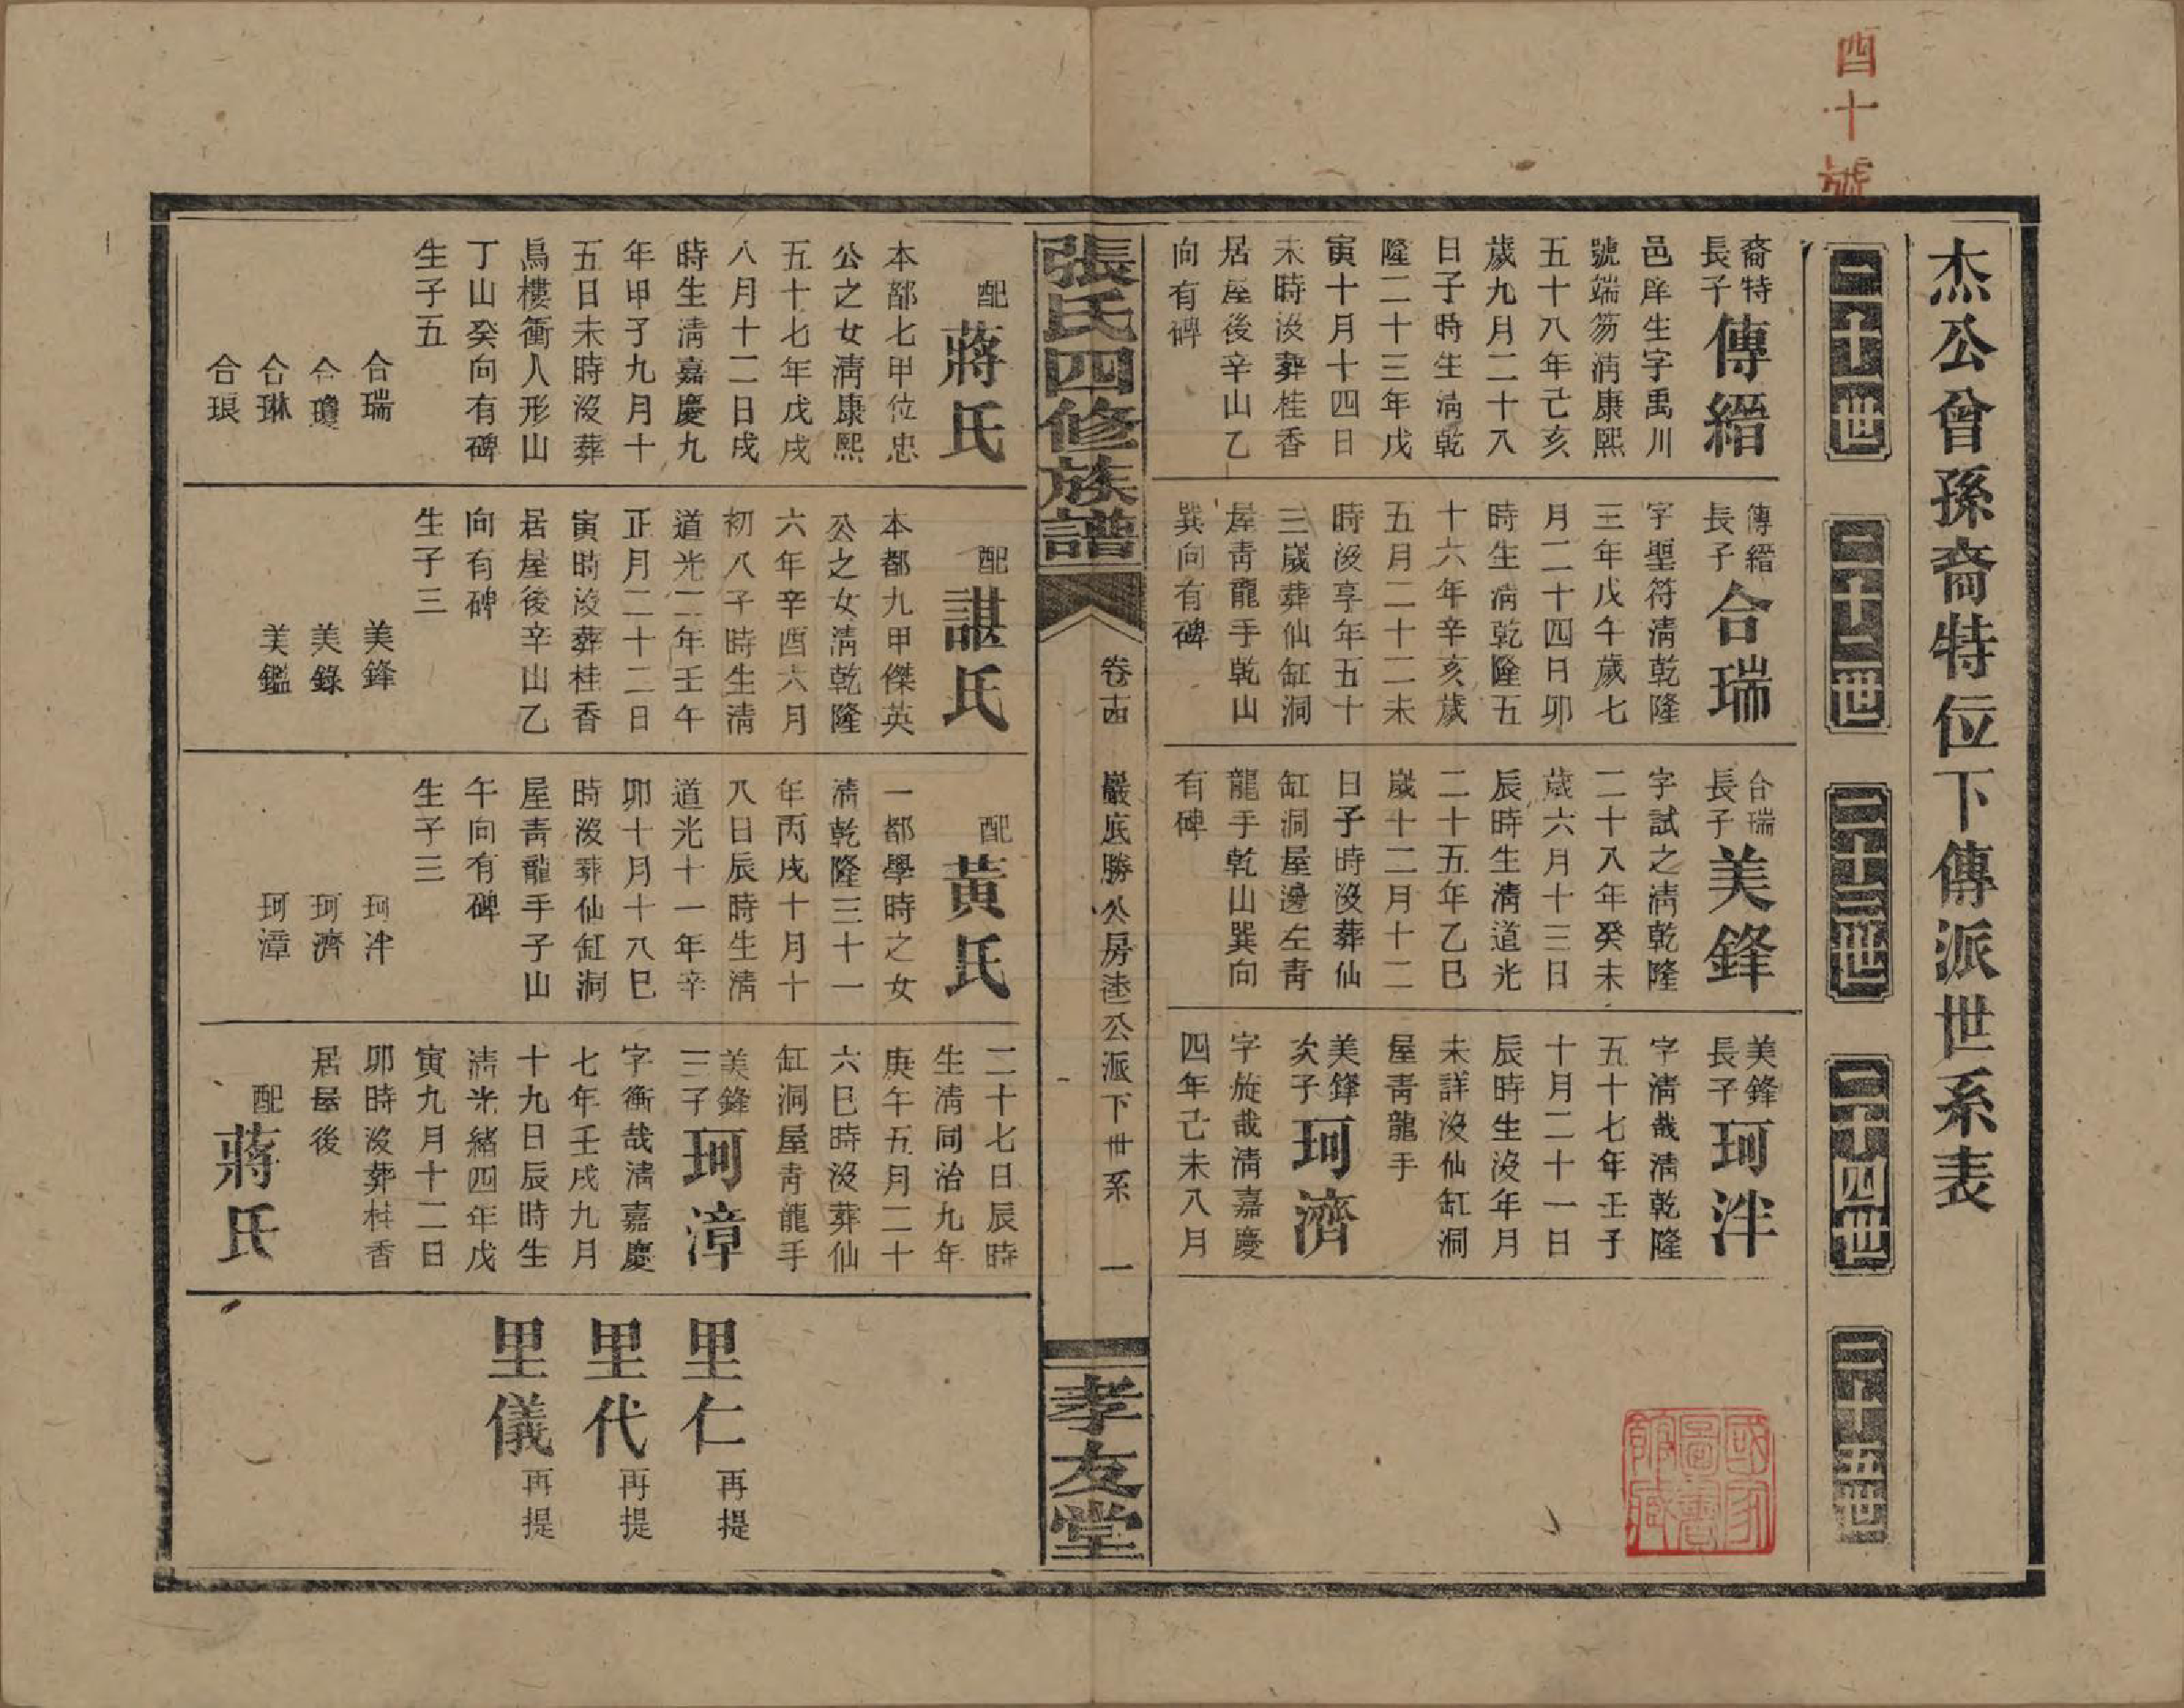 四十號
杰公曾孫裔特位下傳派世系表
二十一世
二十二世
二十三世
二十四世
二十五世
裔特
長子
傳縉
邑庠生字禹川
號端笏清康熙
五十八年己亥
歲九月二十八
日子時生清乾
隆二十三年戊
寅十月十四日
未時沒葬桂香
居屋後辛山乙
向有碑
傳縉
長子
合瑞
字聖符清乾隆
三年戊午歲七
月二十四日卯
時生清乾隆五
十六年辛亥歲
五月二十二未
時沒享年五十
三歲葬仙缸洞
屋青龍手乾山
巽向有碑
合瑞
長子
美鋒
字試之清乾隆
二十八年癸未
歲六月十三日
辰時生清道光
二十五年乙巳
歲十二月十二
日子時沒葬仙
缸洞屋邊左青
龍手乾山巽向
有碑
美鋒
長子
珂泮
字清哉清乾隆
五十七年壬子
十月二十一日
辰時生沒年月
未詳沒仙缸洞
屋青龍手
美鋒
次子
珂濟
字旋哉清嘉慶
四年己未八月
張氏四修族譜
卷十四
巖底勝公房逵公派下世系
一
孝友堂
配
蔣氏
本都七甲位忠
公之女清康熙
五十七年戊戌
八月十二日戌
時生清嘉慶九
年甲子九月十
五日未時沒葬
鳥樓衝人形山
丁山癸向有碑
生子五
合瑞
合瓊
合琳
合琅
配
諶氏
本都九甲傑英
公之女清乾隆
六年辛酉六月
初八子時生清
道光二年壬午
正月二十二日
寅時沒葬桂香
居屋後辛山乙
向有碑
生子三
美鋒
美錄
美鑑
配
黃氏
一都學時之女
清乾隆三十一
年丙戌十月十
八日辰時生清
道光十一年辛
卯十月十八巳
時沒葬仙缸洞
屋青龍手子山
午向有碑
生子三
珂泮
珂濟
珂漳
二十七日辰時
生清同治九年
庚午五月二十
六巳時沒葬仙
缸洞屋青龍手
美鋒
三子
珂漳
字衡哉清嘉慶
七年壬戌九月
十九日辰時生
清光緒四年戊
寅九月十二日
卯時沒葬桂香
居屋後
配
蔣氏
里仁再提
里代再提
里儀再提
國家圖書館藏